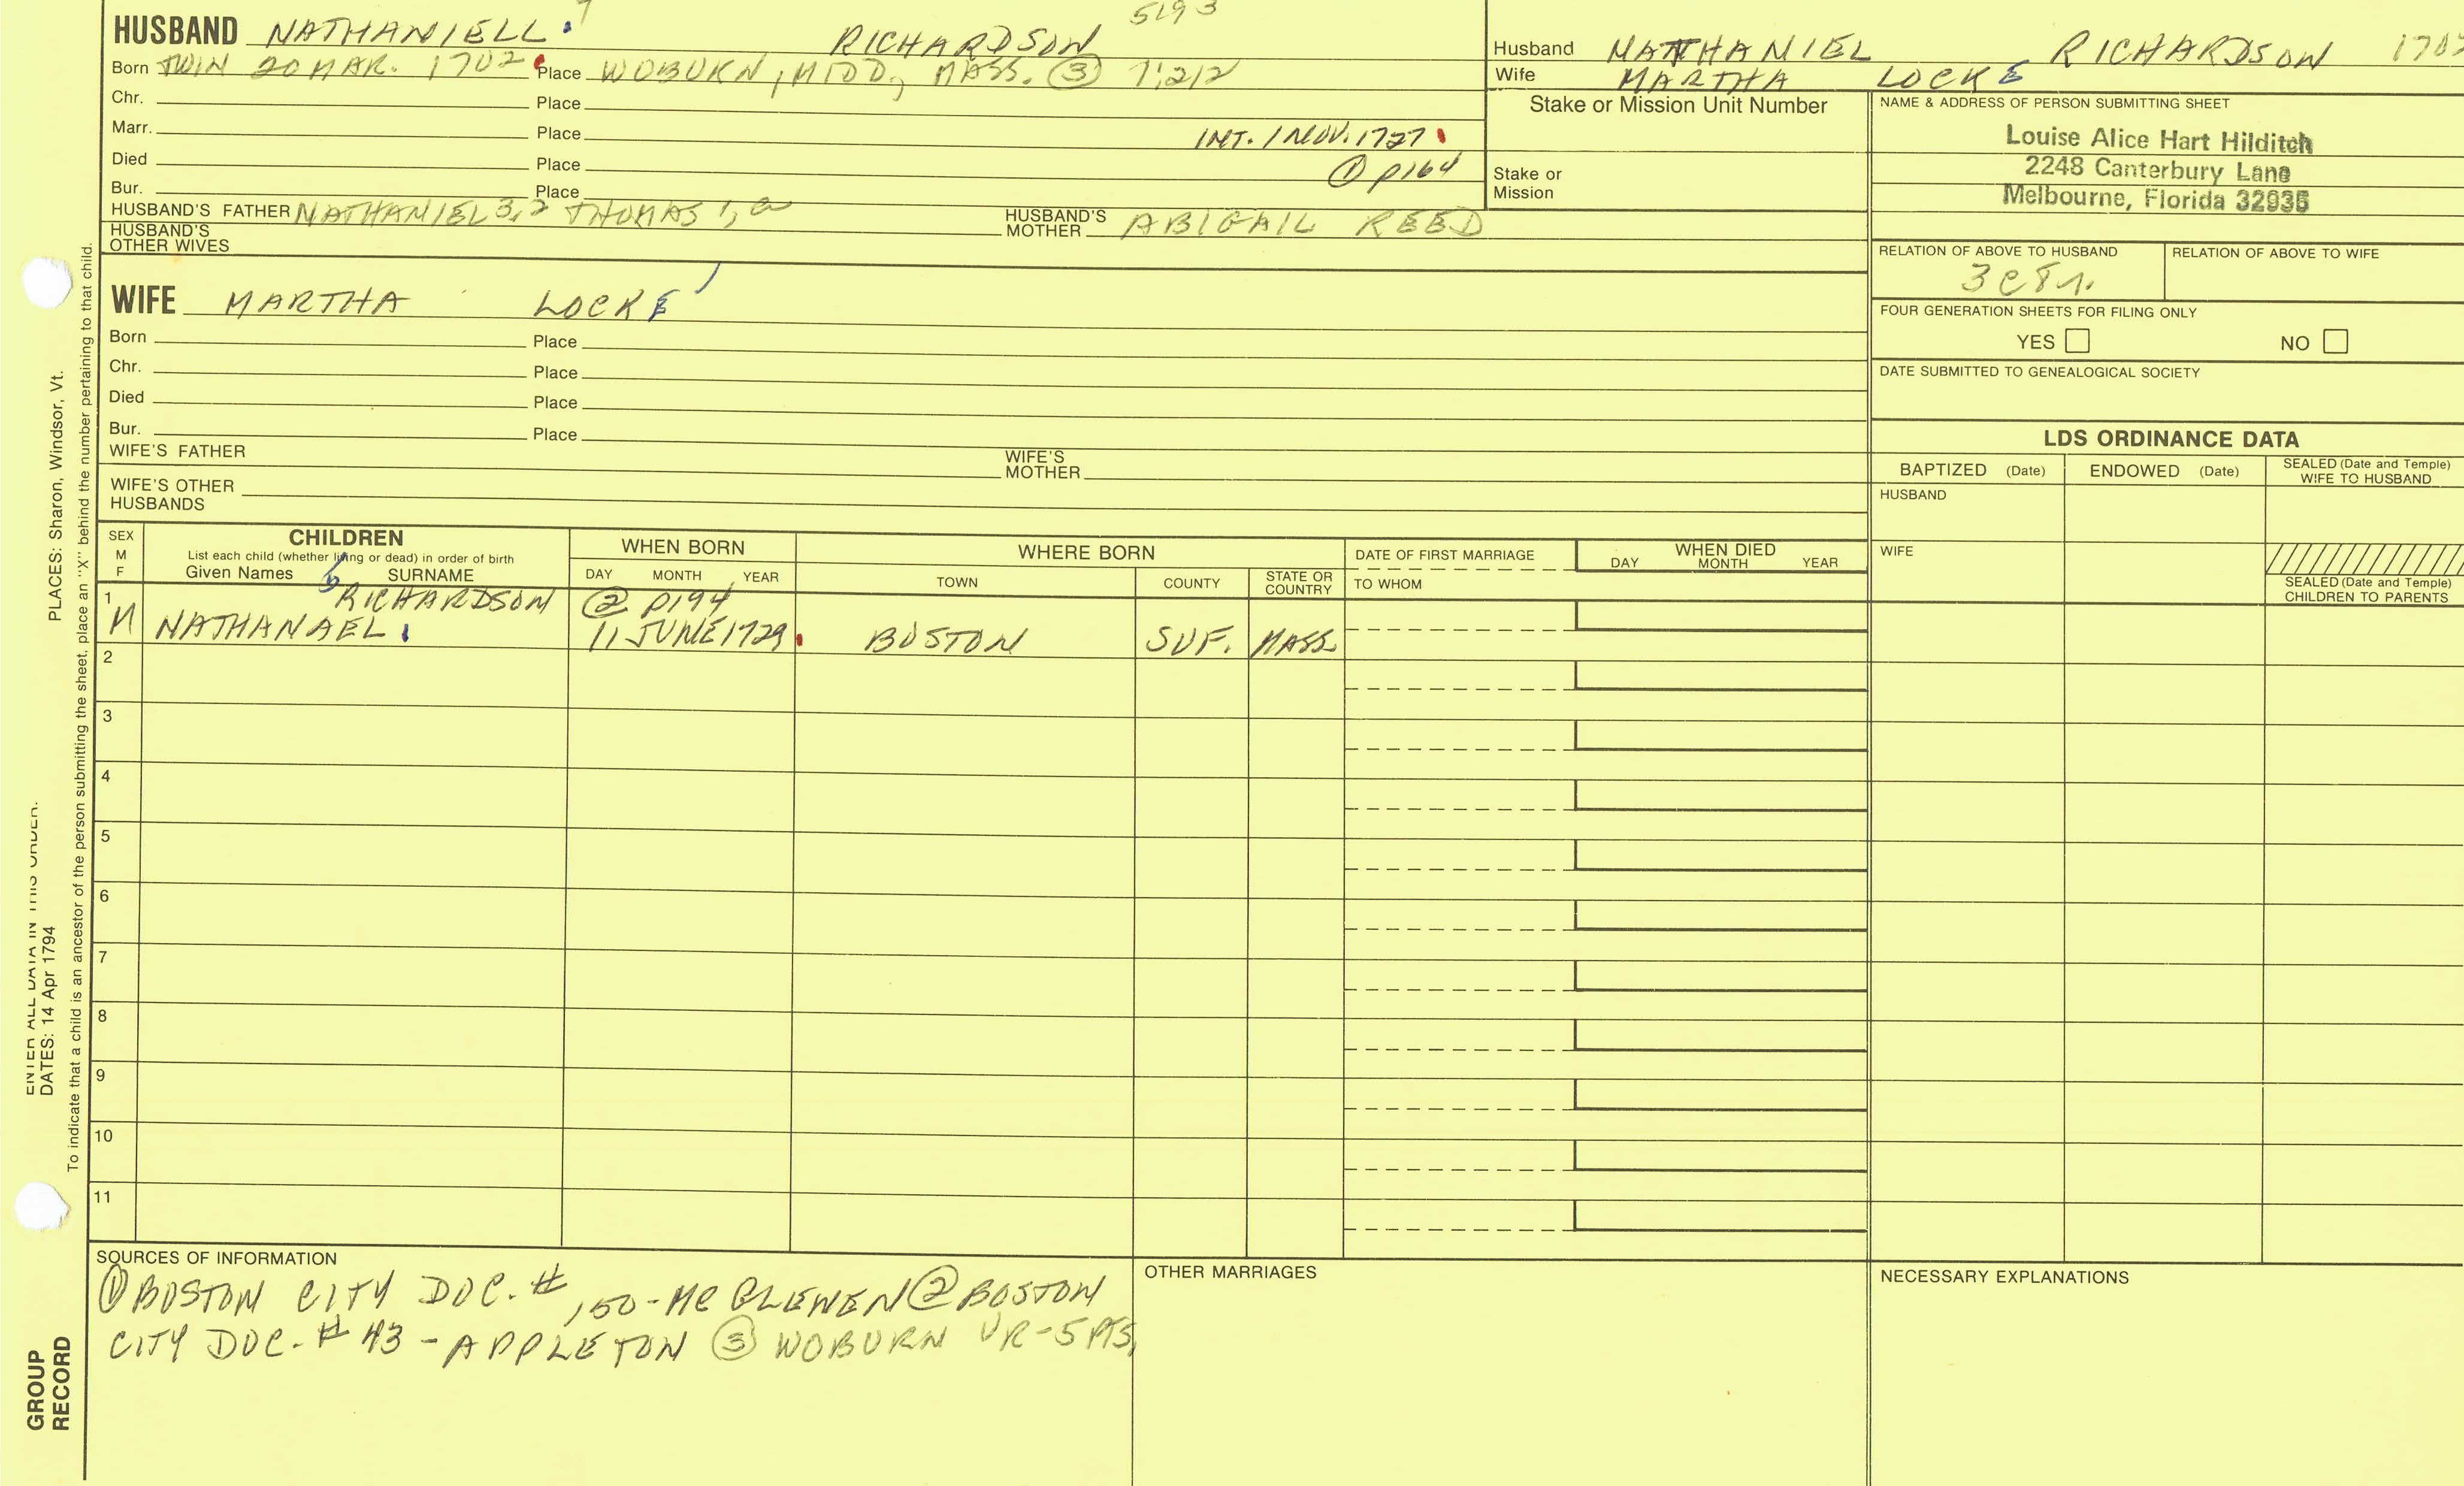 HUSBAND NATHANIELL RICHARDSON 5193
Born TWIN 20 MAR. 1702 Place WOBURN, MIDD, MASS. ③ 1;212
Chr. Place
Marr. Place INT. 1 NOV. 1727
Died Place ① p164
Bur. Place
HUSBAND'S FATHER NATHANIEL 3, 2 THOMAS 1, HUSBAND'S MOTHER ABIGAIL REED
HUSBAND'S OTHER WIVES
WIFE MARTHA LOCKE
Born Place
Chr. Place
Died Place
Bur. Place
WIFE'S FATHER WIFE'S MOTHER
WIFE'S OTHER HUSBANDS
Husband NATHANIEL RICHARDSON 1702
Wife MARTHA LOCKE
Stake or Mission Unit Number
Stake or Mission
NAME & ADDRESS OF PERSON SUBMITTING SHEET
Louise Alice Hart Hilditch
2248 Canterbury Lane
Melbourne, Florida 32935
RELATION OF ABOVE TO HUSBAND RELATION OF ABOVE TO WIFE
3C8r.
FOUR GENERATION SHEETS FOR FILING ONLY
YES NO
DATE SUBMITTED TO GENEALOGICAL SOCIETY
LDS ORDINANCE DATA
BAPTIZED (Date) ENDOWED (Date) SEALED (Date and Temple) WIFE TO HUSBAND
HUSBAND
WIFE
SEALED (Date and Temple) CHILDREN TO PARENTS
SEX M F
CHILDREN
List each child (whether living or dead) in order of birth
Given Names SURNAME
WHEN BORN
DAY MONTH YEAR
WHERE BORN
TOWN COUNTY STATE OR COUNTRY
DATE OF FIRST MARRIAGE
TO WHOM
WHEN DIED
DAY MONTH YEAR
1 RICHARDSON ② p194
M NATHANAEL 11 JUNE 1729 BOSTON SUF. MASS.
2
3
4
5
6
7
8
9
10
11
SOURCES OF INFORMATION
① BOSTON CITY DOC. # 150 - MC GLENEN ② BOSTON
CITY DOC. # 43 - APPLETON ③ WOBURN VR - 5 PTS,
OTHER MARRIAGES
NECESSARY EXPLANATIONS
ENTER ALL DATA IN THIS ORDER:
DATES: 14 Apr 1794 PLACES: Sharon, Windsor, Vt.
To indicate that a child is an ancestor of the person submitting the sheet, place an "X" behind the number pertaining to that child.
GROUP
RECORD